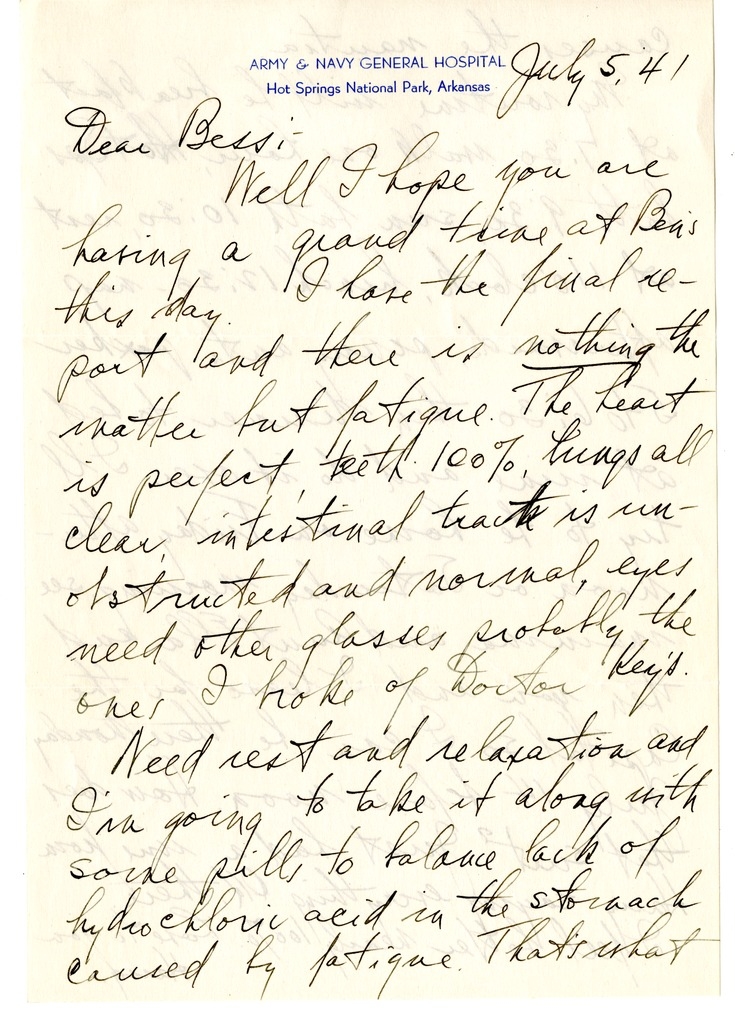 ARMY & NAVY GENERAL HOSPITAL
Hot Springs National Park, Arkansas
July 5, 41
Dear Bess:-
Well I hope you are
having a grand time at Ben's
this day. I have the final re-
port and there is nothing the
matter but fatigue. The heart
is perfect, teeth 100%, lungs all
clear, intestinal track is un-
obstructed and normal, eyes
need other glasses probably the
ones I broke of Doctor Key's.
Need rest and relaxation and
I'm going to take it along with
some pills to balance lack of
hydrochloric acid in the stomach
caused by fatigue. That's what